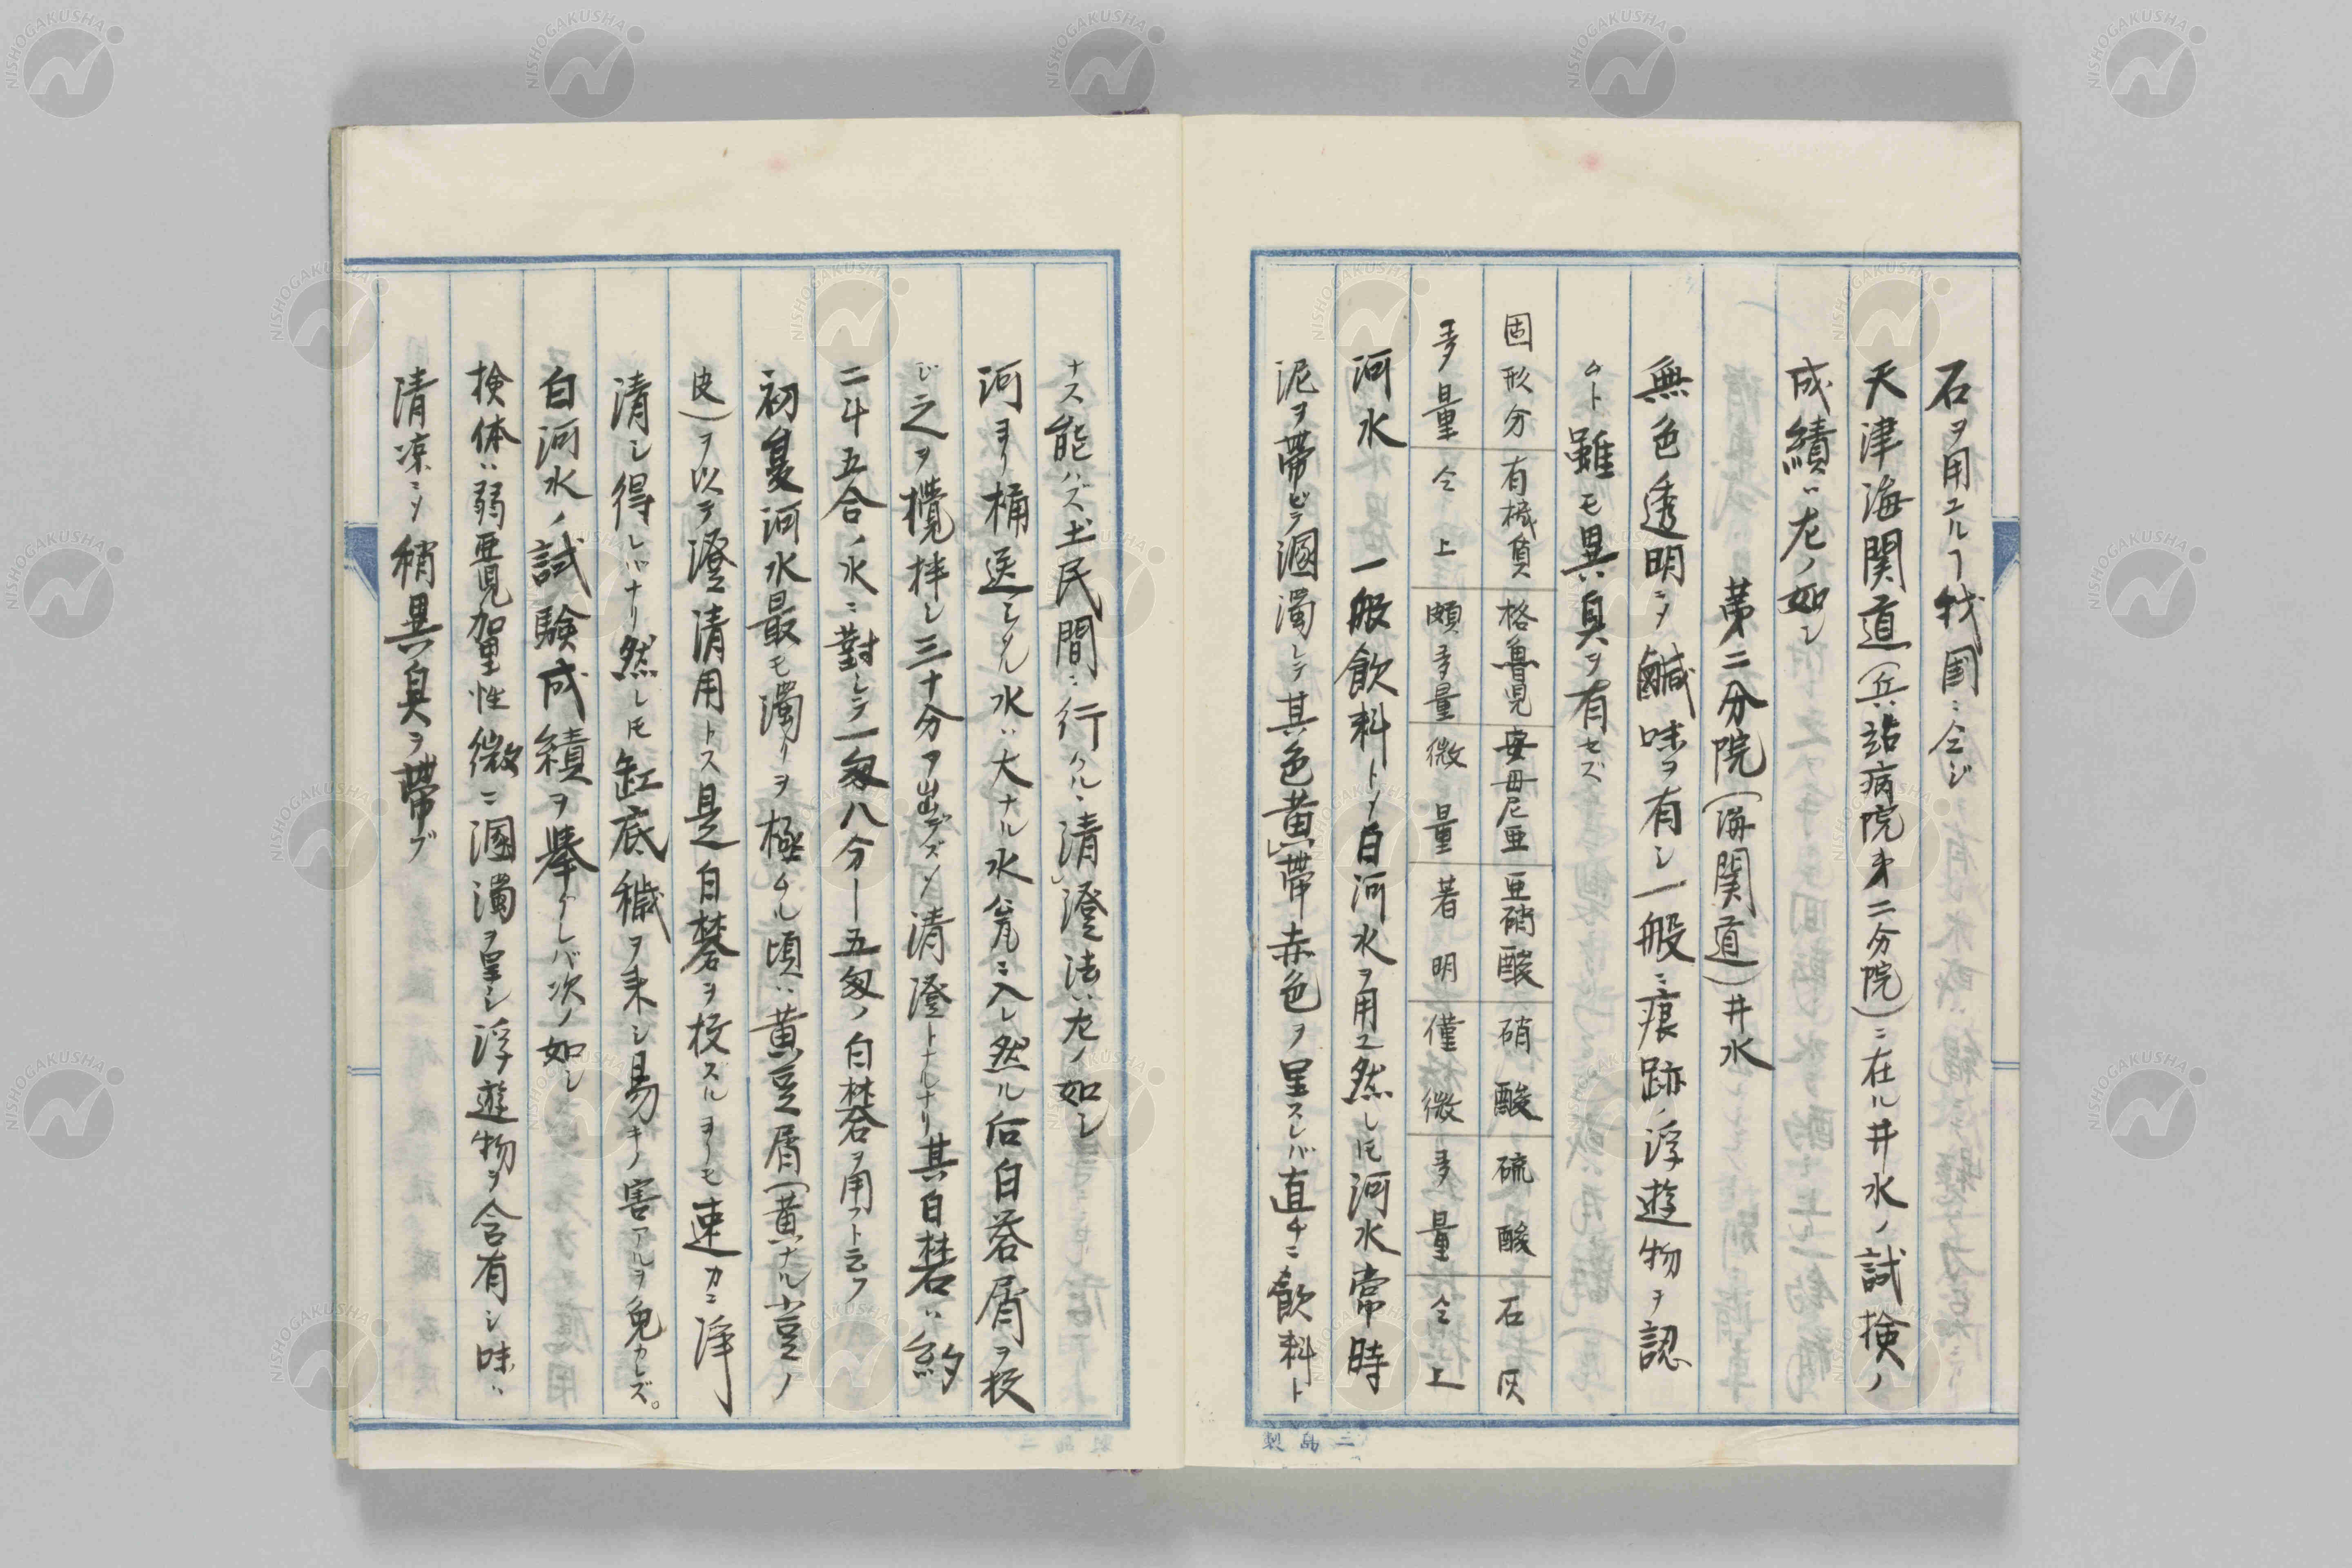 石ヲ用ユルヿ我国ニ仝ジ
天津海関道（兵站病院才二分院）ニ在ル井水ノ試検ノ
成績ハ左ノ如シ
第二分院（海関道）井水
無色透明ニ〆鹹味ヲ有シ一般ニ痕跡ノ浮遊物ヲ認
ムト雖モ異臭ヲ有セズ
固形分 有機質 格魯児 安母尼亜 亜硝酸 硝酸 硫酸 石灰
多量 仝上 頗多量 微量 著明 僅微 多量 仝上
河水 一般飲料ト〆白河水ヲ用ユ然レ𪜈河水常時
泥ヲ帯ビテ溷濁シテ其色黄帯赤色ヲ呈スレバ直チニ飲料ト
ナス能ハズ土民間ニ行クルヽ清澄法ハ左ノ如シ
河ヨリ桶送シタル水ハ大ナル水瓮ニ入レ然ル后白礬屑ヲ投
ジ之ヲ攪拌シ三十分ヲ出デズ〆清澄トナルナリ其白礬ハ約
二斗五合ノ水ニ對シテ一匁八分ー五匁ノ白礬ヲ用フト云フ
初夏河水最モ濁リヲ極ムル頃ハ黄豆屑（黄ナル豈ノ
皮）ヲ以テ澄清用トス是白礬ヲ投スルヨリモ速カニ浄
清シ得レバナリ然レ𪜈缸底穢ヲ来シ易キノ害アルヲ免カレズ。
白河水ノ試験成績ヲ挙クレバ次ノ如シ
検体ハ弱亜児加里性微ニ溷濁ヲ呈シ浮遊物ヲ含有シ味ハ
清凉ニ〆稍異臭ヲ帯ブ
三島製
NISHOGAKUSHA